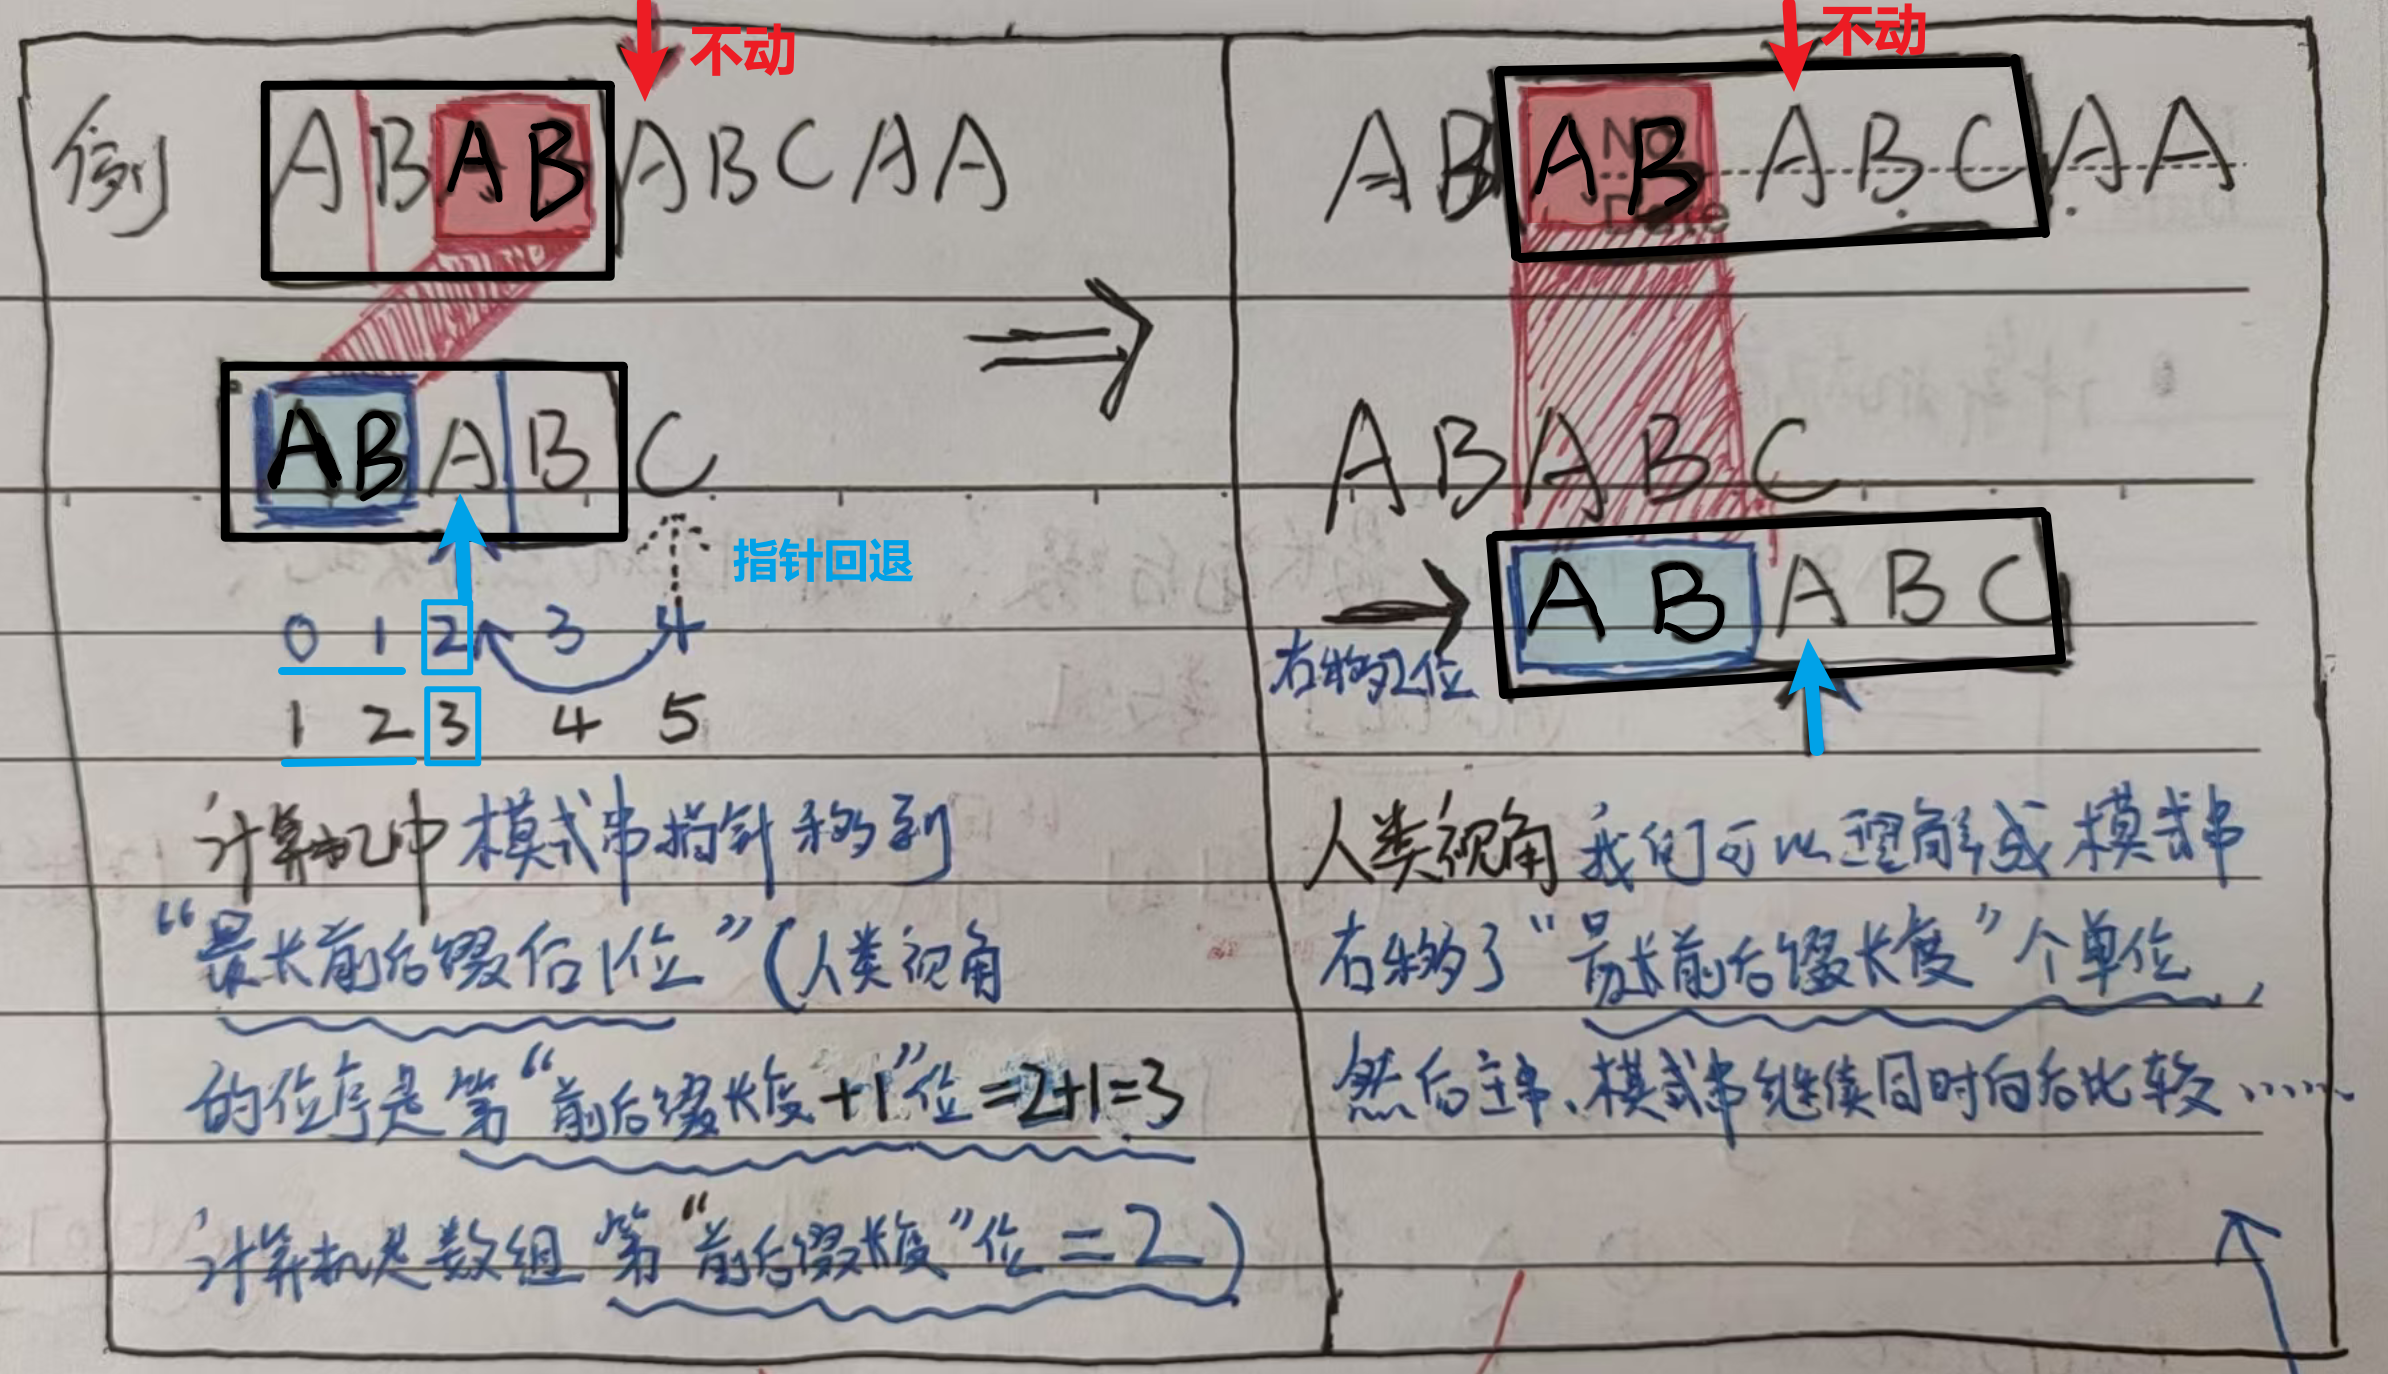 不动
例 ABABABCAA
ABABC
指针回退
0 1 2 3 4
1 2 3 4 5
计算机中 模式串指针移到
“最长前后缀后1位”(人类视角
的位序是第“前后缀长度+1”位=2+1=3
计算机是数组 第“前后缀长度”位=2)
不动
ABABABCAA
No
Date
ABABC
ABABC
右移2位
人类视角 我们可以理解成 模式串
右移了“最长前后缀长度”个单位,
然后主串、模式串继续同时向后比较……